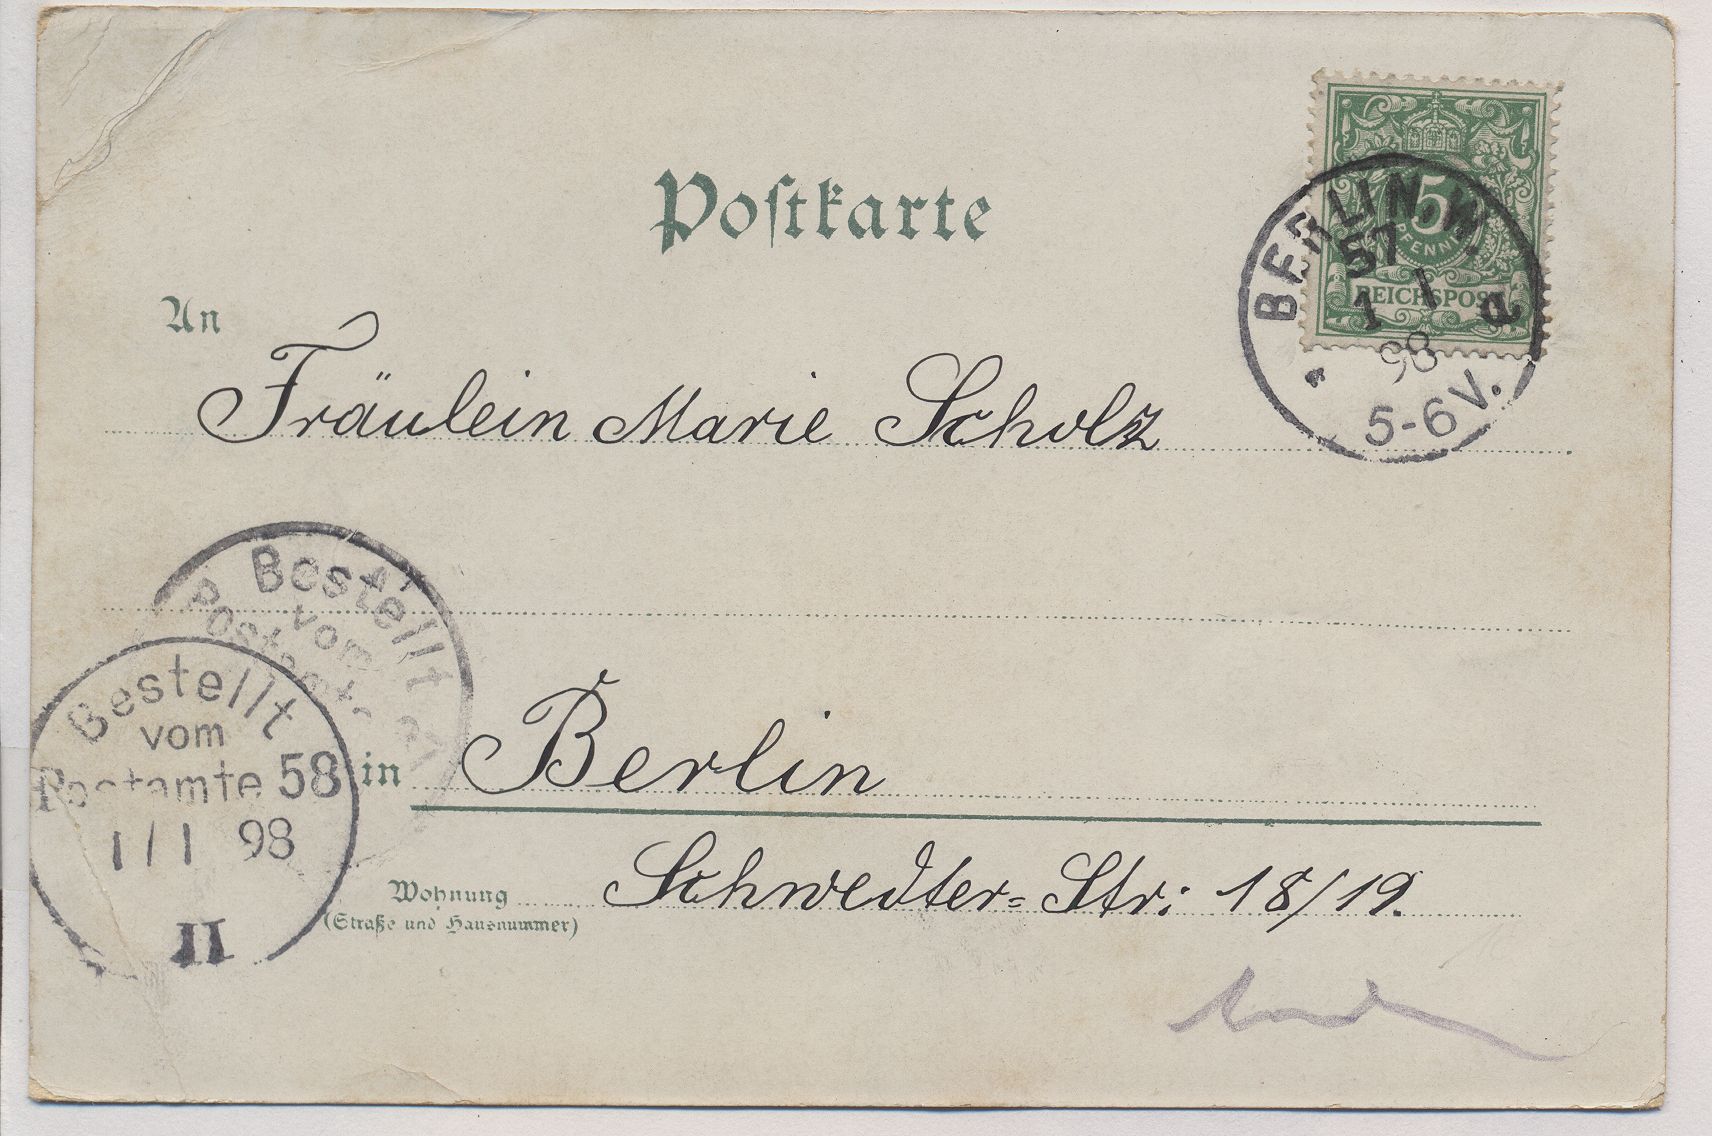 Postkarte
5
PFENNIG
REICHSPOST
BERLIN. W.
57
1 1 a
98
5-6V.
An
Fräulein Marie Scholz
Bestellt
vom
Postamte
Bestellt
vom
Postamte 58
1/1 98
II
in Berlin
Wohnung Schwedter=Str: 18/19.
(Straße und Hausnummer)